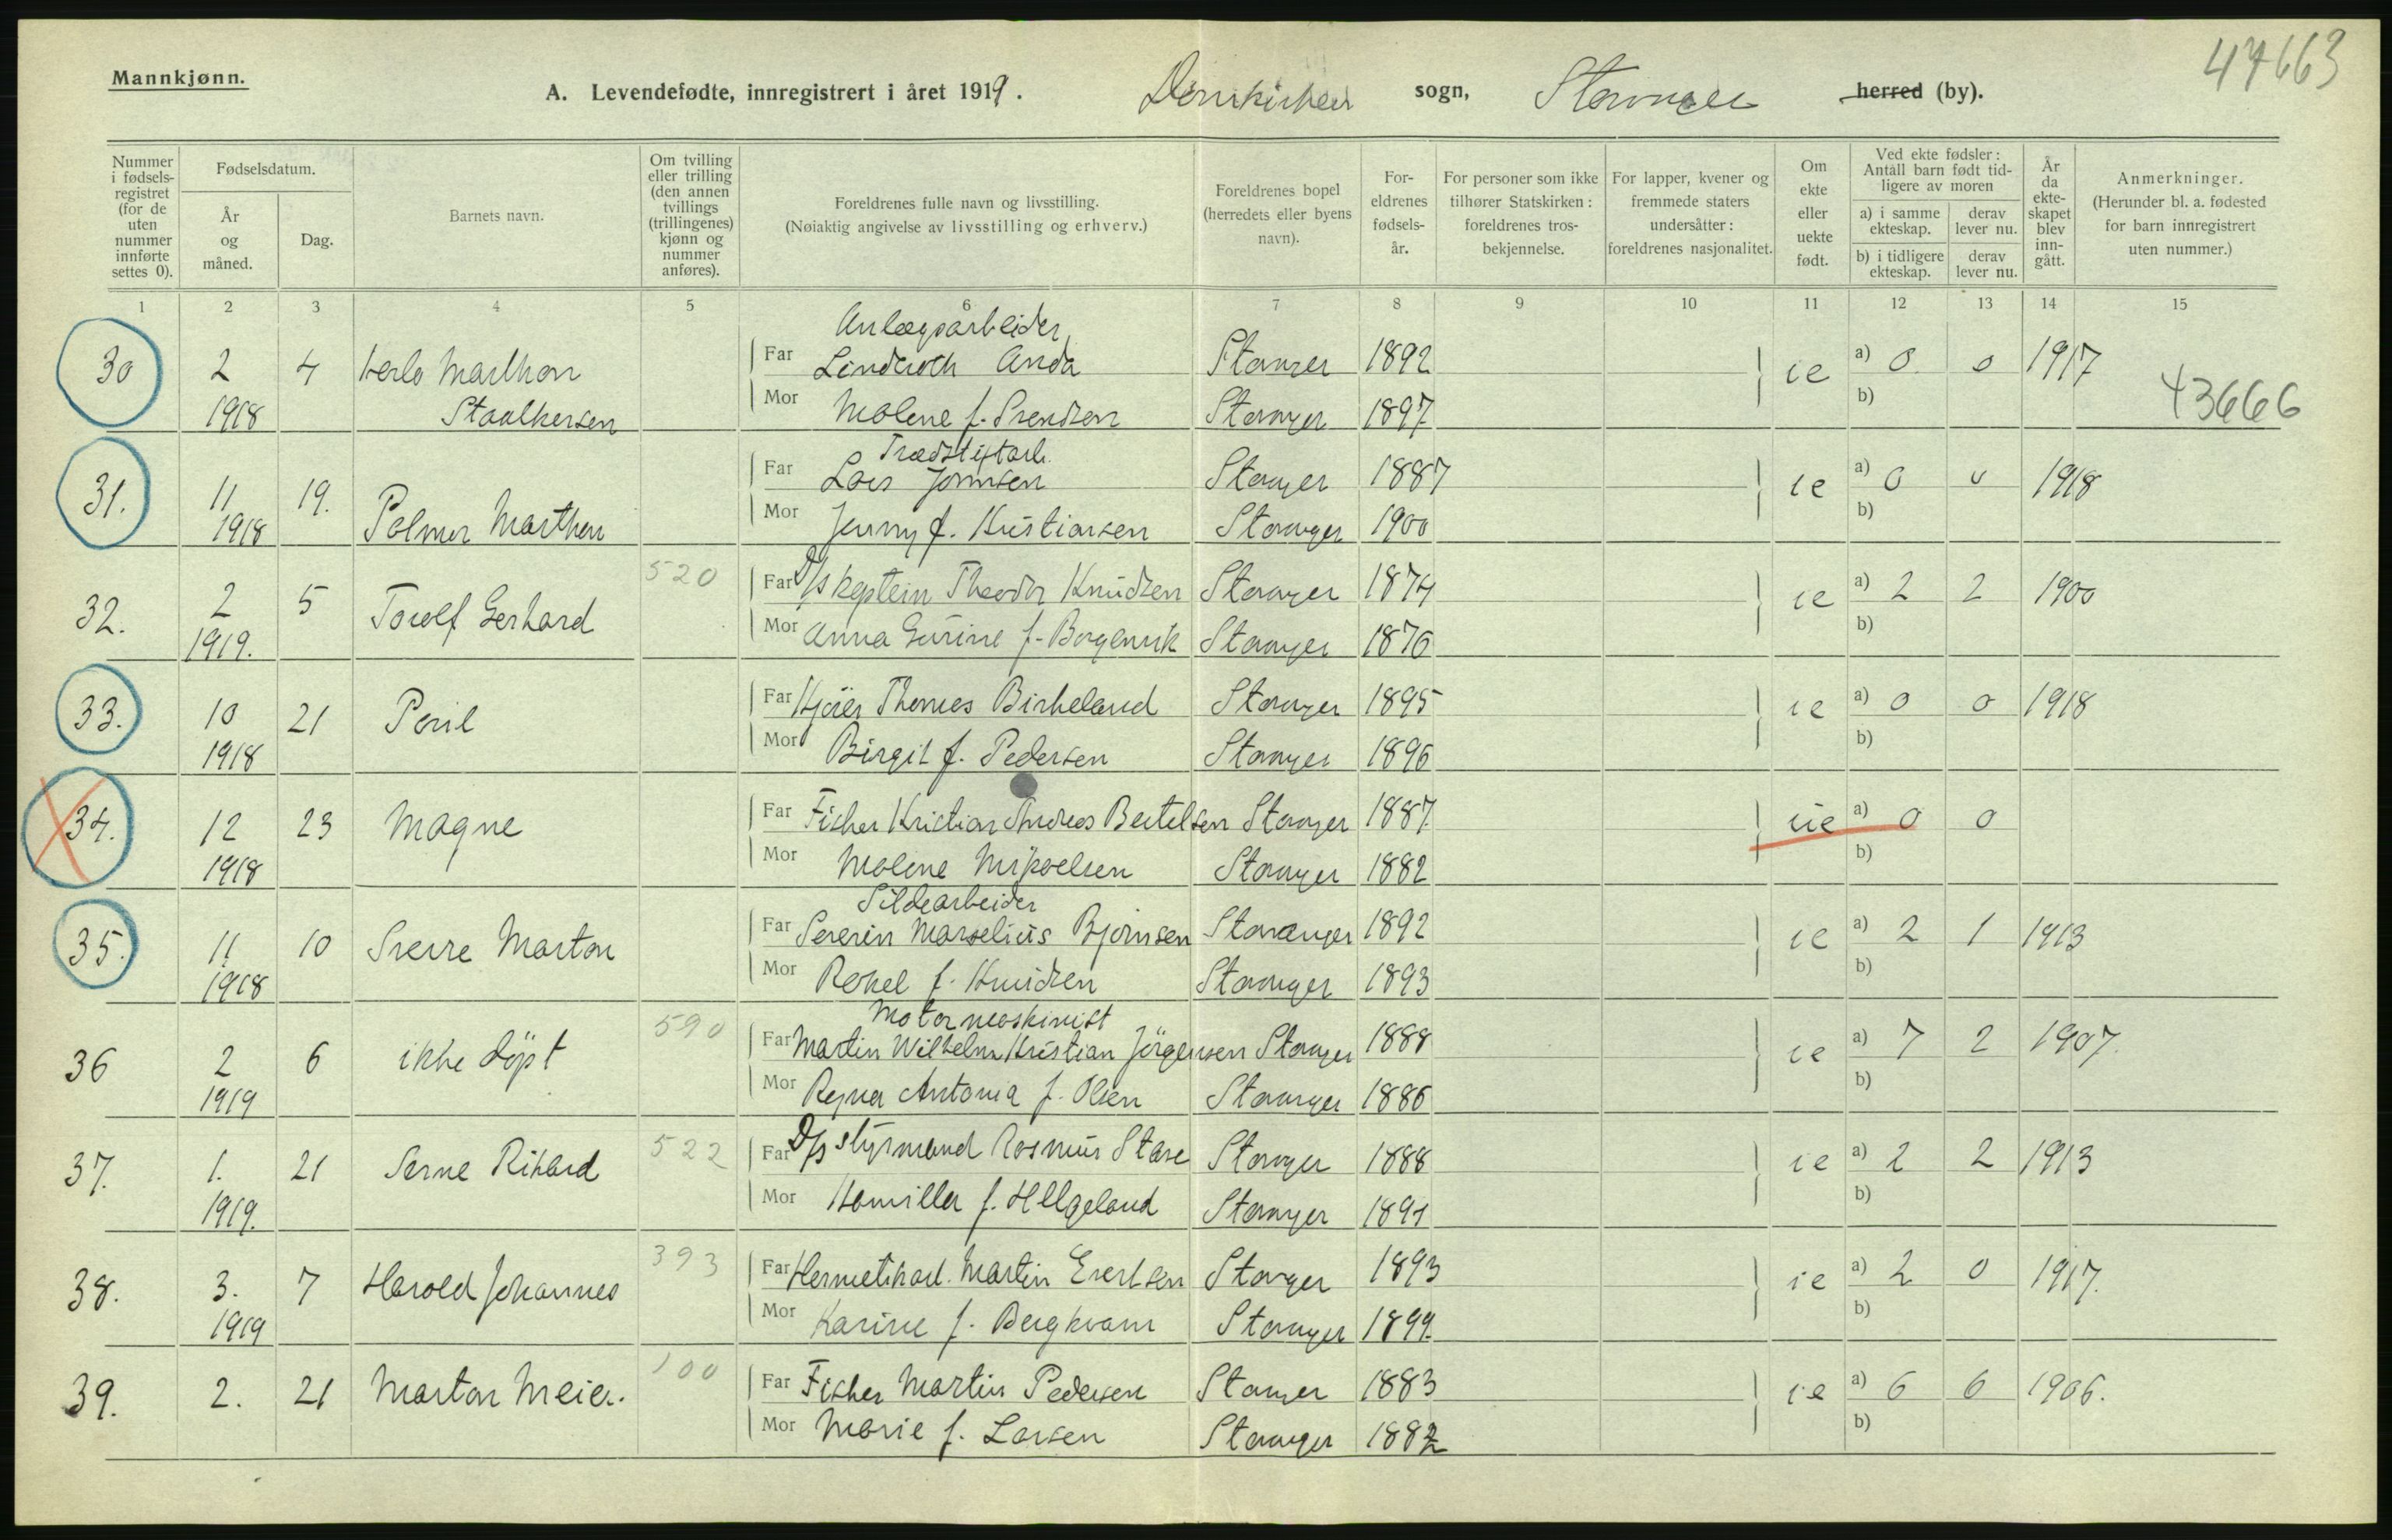 47663
Mannkjønn.
A. Levendefødte, innregistrert i året 1919. Domkirken sogn, Stavanger herred (by).
Nummer i fødselsregistret (for de uten nummer innførte settes 0).
Fødselsdatum.
År og måned.
Dag.
Barnets navn.
Om tvilling eller trilling (den annen tvillings (trillingenes) kjønn og nummer anføres).
Foreldrenes fulle navn og livsstilling.
(Nøiaktig angivelse av livsstilling og erhverv.)
Foreldrenes bopel (herredets eller byens navn).
Foreldrenes fødselsår.
For personer som ikke tilhører Statskirken: foreldrenes trosbekjennelse.
For lapper, kvener og fremmede staters undersåtter: foreldrenes nasjonalitet.
Om ekte eller uekte født.
Ved ekte fødsler: Antall barn født tidligere av moren
a) i samme ekteskap.
derav lever nu.
b) i tidligere ekteskap.
derav lever nu.
År da ekteskapet blev inngått.
Anmerkninger.
(Herunder bl. a. fødested for barn innregistrert uten nummer.)
1 2 3 4 5 6 7 8 9 10 11 12 13 14 15
Anlægsarbeider
30 2 4 Far Stavanger 1892 ie a) 0 0 1917
1918 Mor Malene f. Svendsen Stavanger 1897 b) 43666
Trædstiftarb.
31. 11 19. Far Lars Stavanger 1887 ie a) 0 0 1918
1918 Palmer Marthon Mor Jenny f. Kristiansen Stavanger 1900 b)
32. 2 5 Torolf Gerhard 520 Far D/s kaptein Theodor Knudsen Stavanger 1874 ie a) 2 2 1900
1919. Mor Anna Gurine f. Stavanger 1876 b)
33. 10 21 Far Thomas Birkeland Stavanger 1895 ie a) 0 0 1918
1918 Mor Birgit f. Pedersen Stavanger 1896 b)
34. 12 23 Magne Far Fisker Kristian Andreas Bertelsen Stavanger 1887. uie a) 0 0
1918 Mor Malene Mikaelsen Stavanger 1882 b)
Sildearbeider
35. 11 10 Sverre Marton Far Severin Marselius Bjørnsen Stavanger 1892 ie a) 2 1 1913
1918 Mor Rakel f. Knudsen Stavanger 1893 b)
Motormaskinist
36 2 6 ikke døpt 590 Far Martin Wilhelm Kristian Jörgensen Stavanger 1888 ie a) 7 2 1907.
1919 Mor Ragna Antonia f. Olsen Stavanger 1886 b)
37. 1. 21 Rikard 522 Far D/s styrmand Rasmus Stave Stavanger 1888 ie a) 2 2 1913
1919. Mor Kamilla f. Helgeland Stavanger 1891 b)
38. 3. 7 Harold Johannes 393 Far Hermetikarb. Martin Evertsen Stavanger 1893 ie a) 2 0 1917.
1919 Mor Karine f. Bergkvam Stavanger 1899. b)
39. 2. 21 Marton Meier. 100 Far Fisker Martin Pedersen Stavanger 1883 ie a) 6 6 1906.
Mor Marie f. Larsen Stavanger 1882 b)